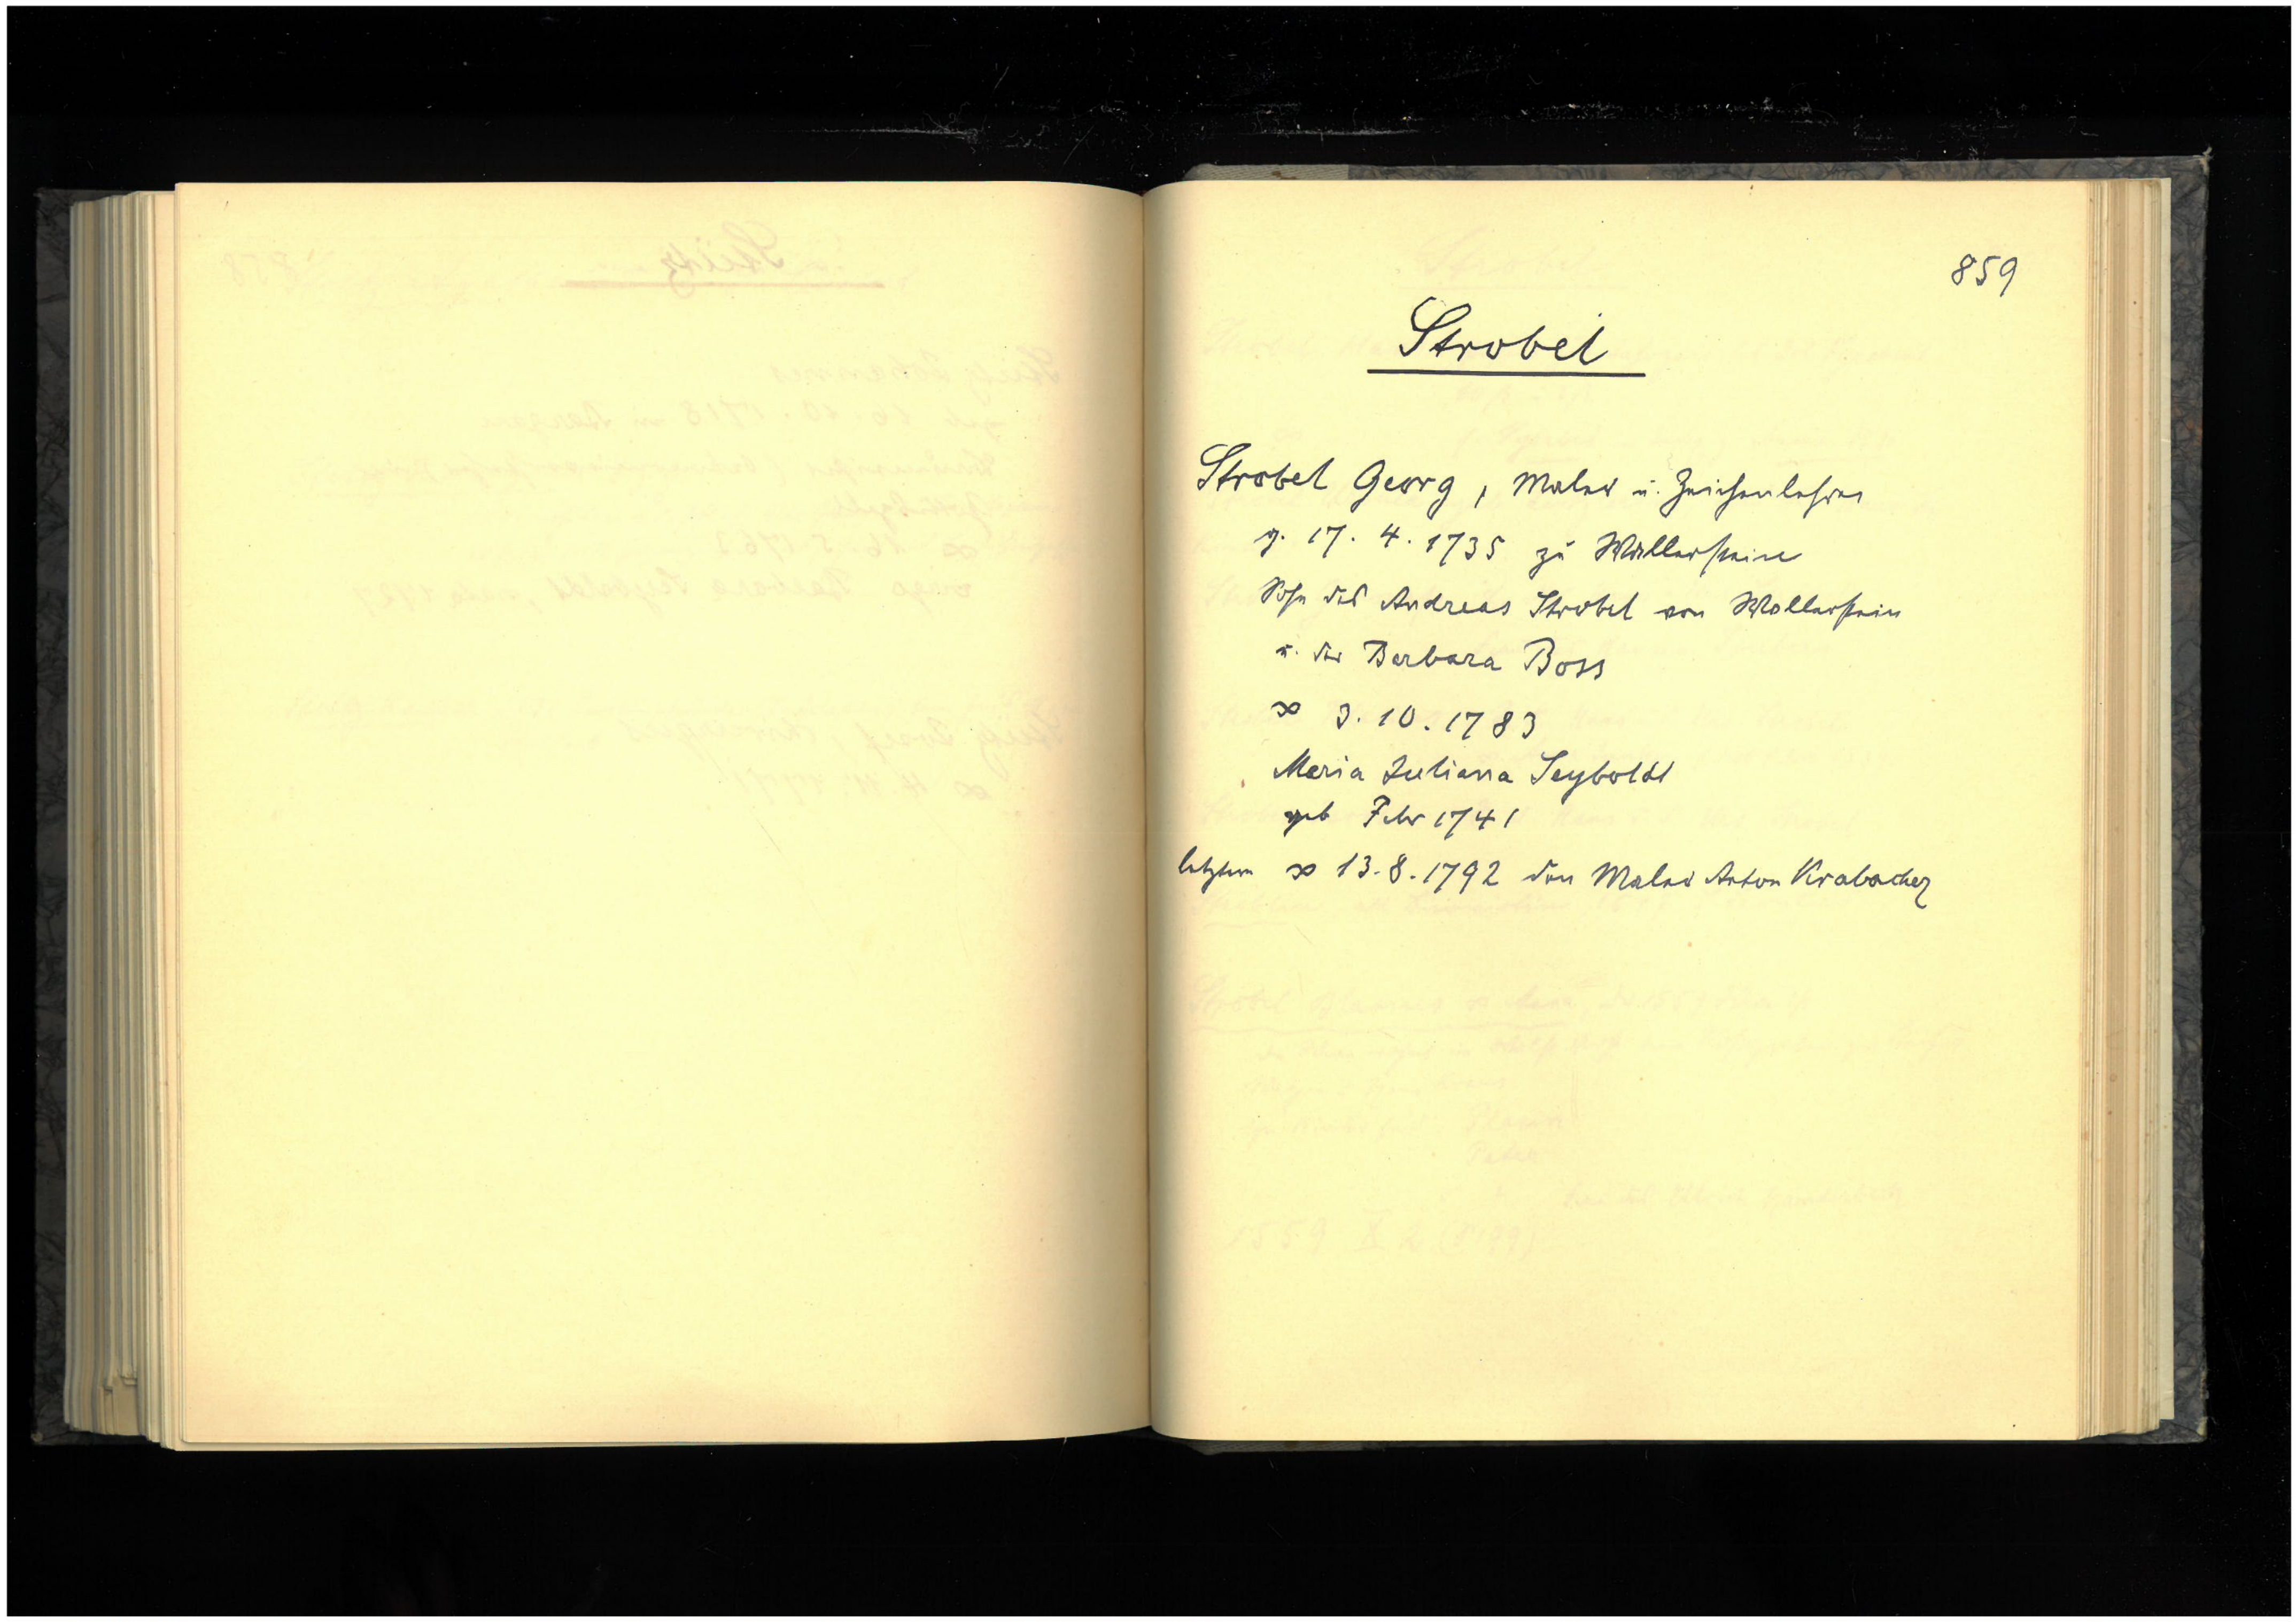 859
Strobel
Strobel Georg, Maler u. Zeichenlehrer
g. 17. 4. 1735 zu Wallerstein
Sohn des Andreas Strobel von Wallerstein
u. der Barbara Boss
∞ 3. 10. 1783
Maria Juliana Seyboldt
geb Febr 1741
letztere ∞ 13. 8. 1792 den Maler Anton Krabacher